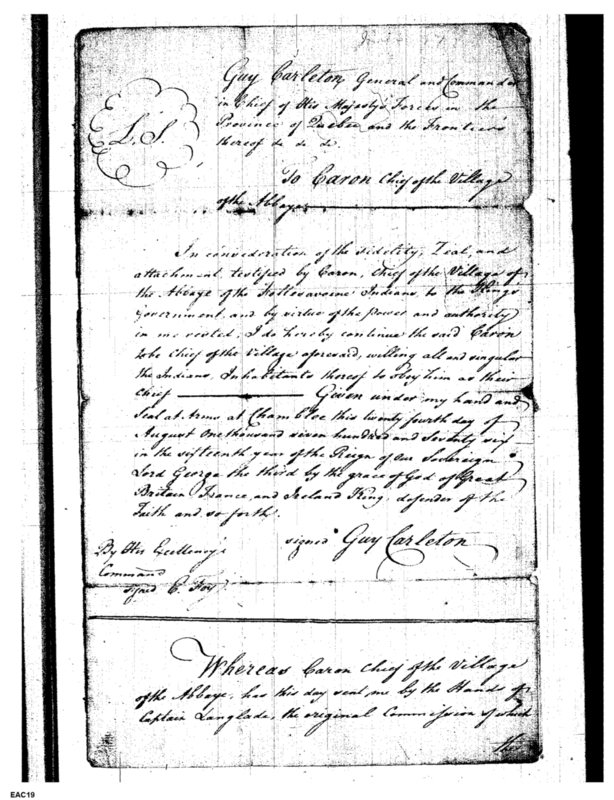 L.S.
Guy Carleton General and Commander
in Chief of His Majesty's Forces in the
Province of Quebec and the Frontiers
thereof &c &c &c
To Caron Chief of the Village
of the Abbaye
In consideration of the fidelity, Zeal, and
attachment testified by Caron, Chief of the Village of
the Abbaye of the Indians, to the King's
Government, and by virtue of the Power and authority
in me vested, I do hereby continue the said Caron
to be Chief of the Village aforesaid, willing all and singular
the Indians, Inhabitants thereof to obey him as their
Chief Given under my hand and
Seal at Arms at this twenty fourth day of
August One thousand seven hundred and Seventy six
in the sixteenth year of the Reign of Our Sovereign
Lord George the third by the grace of God of Great
Britain France, and Ireland King, defender of the
Faith and so forth.
signed Guy Carleton
By His Excellency's
Command
signed E. Foy
Whereas Caron Chief of the Village
of the Abbaye, has this day sent me by the Hands of
Captain Langlade, the original Commission of which
th
EAC19